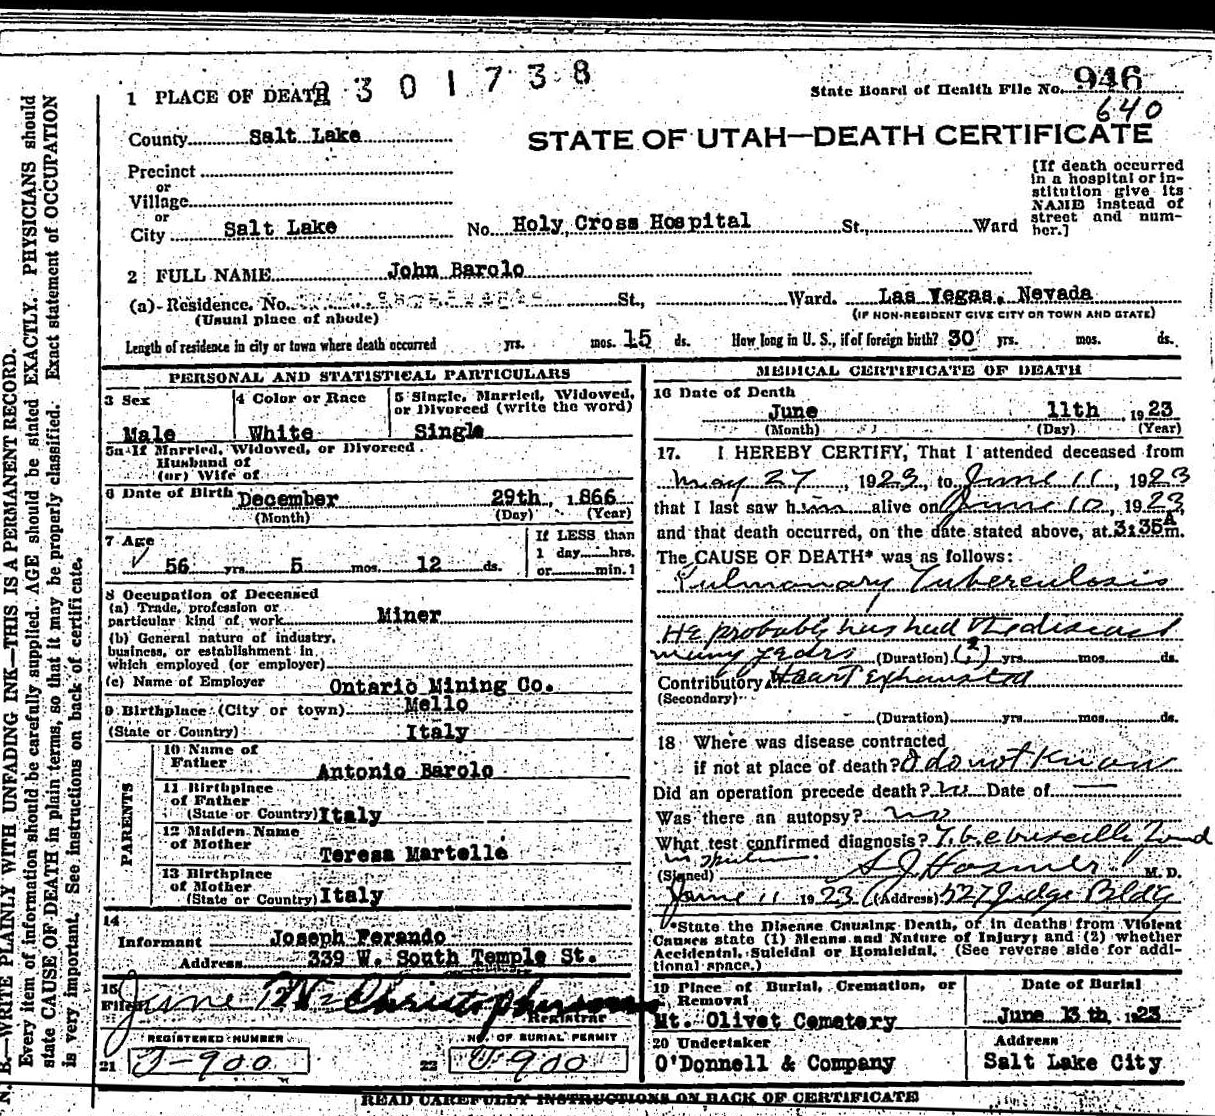 2301738
State Board of Health File No. 946
640
1 PLACE OF DEATH
County Salt Lake
STATE OF UTAH—DEATH CERTIFICATE
Precinct
or
Village
or
City Salt Lake No. Holy Cross Hospital St., Ward
[If death occurred
in a hospital or in-
stitution give its
NAME instead of
street and num-
ber.]
2 FULL NAME John Barolo
(a) Residence. No. St., Ward. Las Vegas, Nevada
(Usual place of abode) (IF NON-RESIDENT GIVE CITY OR TOWN AND STATE)
Length of residence in city or town where death occurred yrs. mos. 15 ds. How long in U. S., if of foreign birth? 30 yrs. mos. ds.
PERSONAL AND STATISTICAL PARTICULARS
3 Sex
Male
4 Color or Race
White
5 Single, Married, Widowed,
or Divorced (write the word)
Single
5a If Married, Widowed, or Divorced
Husband of
(or) Wife of
6 Date of Birth December 29th, 1866
(Month) (Day) (Year)
7 Age
✓ 56 yrs. 5 mos. 12 ds.
If LESS than
1 day hrs.
or min.]
8 Occupation of Deceased
(a) Trade, profession or
particular kind of work Miner
(b) General nature of industry,
business, or establishment in
which employed (or employer)
(c) Name of Employer Ontario Mining Co.
9 Birthplace (City or town) Mello
(State or Country) Italy
PARENTS
10 Name of
Father Antonio Barolo
11 Birthplace
of Father
(State or Country) Italy
12 Maiden Name
of Mother Teresa Martelle
13 Birthplace
of Mother
(State or Country) Italy
14
Informant Joseph Ferando
Address 339 W. South Temple St.
15
Filed June
Registrar
REGISTERED NUMBER
21 J-900
NO. OF BURIAL PERMIT
22 900
MEDICAL CERTIFICATE OF DEATH
16 Date of Death
June 11th 1923
(Month) (Day) (Year)
17. I HEREBY CERTIFY, That I attended deceased from
May 27, 1923, to June 11, 1923
that I last saw him alive on June 10, 1923
and that death occurred, on the date stated above, at 3:35 A m.
The CAUSE OF DEATH* was as follows:
Pulmonary Tuberculosis
He probably has had the disease
many years (Duration) (?) yrs. mos. ds.
Contributory Heart Exhausted
(Secondary)
(Duration) yrs. mos. ds.
18 Where was disease contracted
if not at place of death? I do not Know
Did an operation precede death? no Date of —
Was there an autopsy? no
What test confirmed diagnosis? T.b. bacilli found
in
(Signed) S J Hosmer M. D.
June 11 1923 (Address) 527 Judge Bldg
*State the Disease Causing Death, or in deaths from Violent
Causes state (1) Means and Nature of Injury; and (2) whether
Accidental, Suicidal or Homicidal. (See reverse side for addi-
tional space.)
19 Place of Burial, Cremation, or
Removal
Mt. Olivet Cemetery
Date of Burial
June 13th, 1923
20 Undertaker
O'Donnell & Company
Address
Salt Lake City
READ CAREFULLY INSTRUCTIONS ON BACK OF CERTIFICATE
N. B.—WRITE PLAINLY WITH UNFADING INK—THIS IS A PERMANENT RECORD.
Every item of information should be carefully supplied. AGE should be stated EXACTLY. PHYSICIANS should
state CAUSE OF DEATH in plain terms, so that it may be properly classified. Exact statement of OCCUPATION
is very important. See instructions on back of certificate.